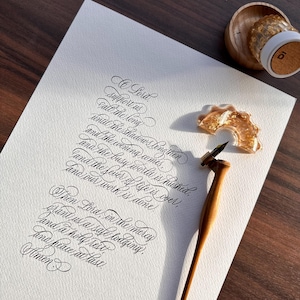 O Lord,
support us
all day long,
until the shadows lengthen
and the evening comes
and the busy world is hushed,
and the fever of life is over,
and our work is done.
Then, Lord, in thy mercy
grant us a safe lodging,
and a holy rest
and peace at the last.
Amen